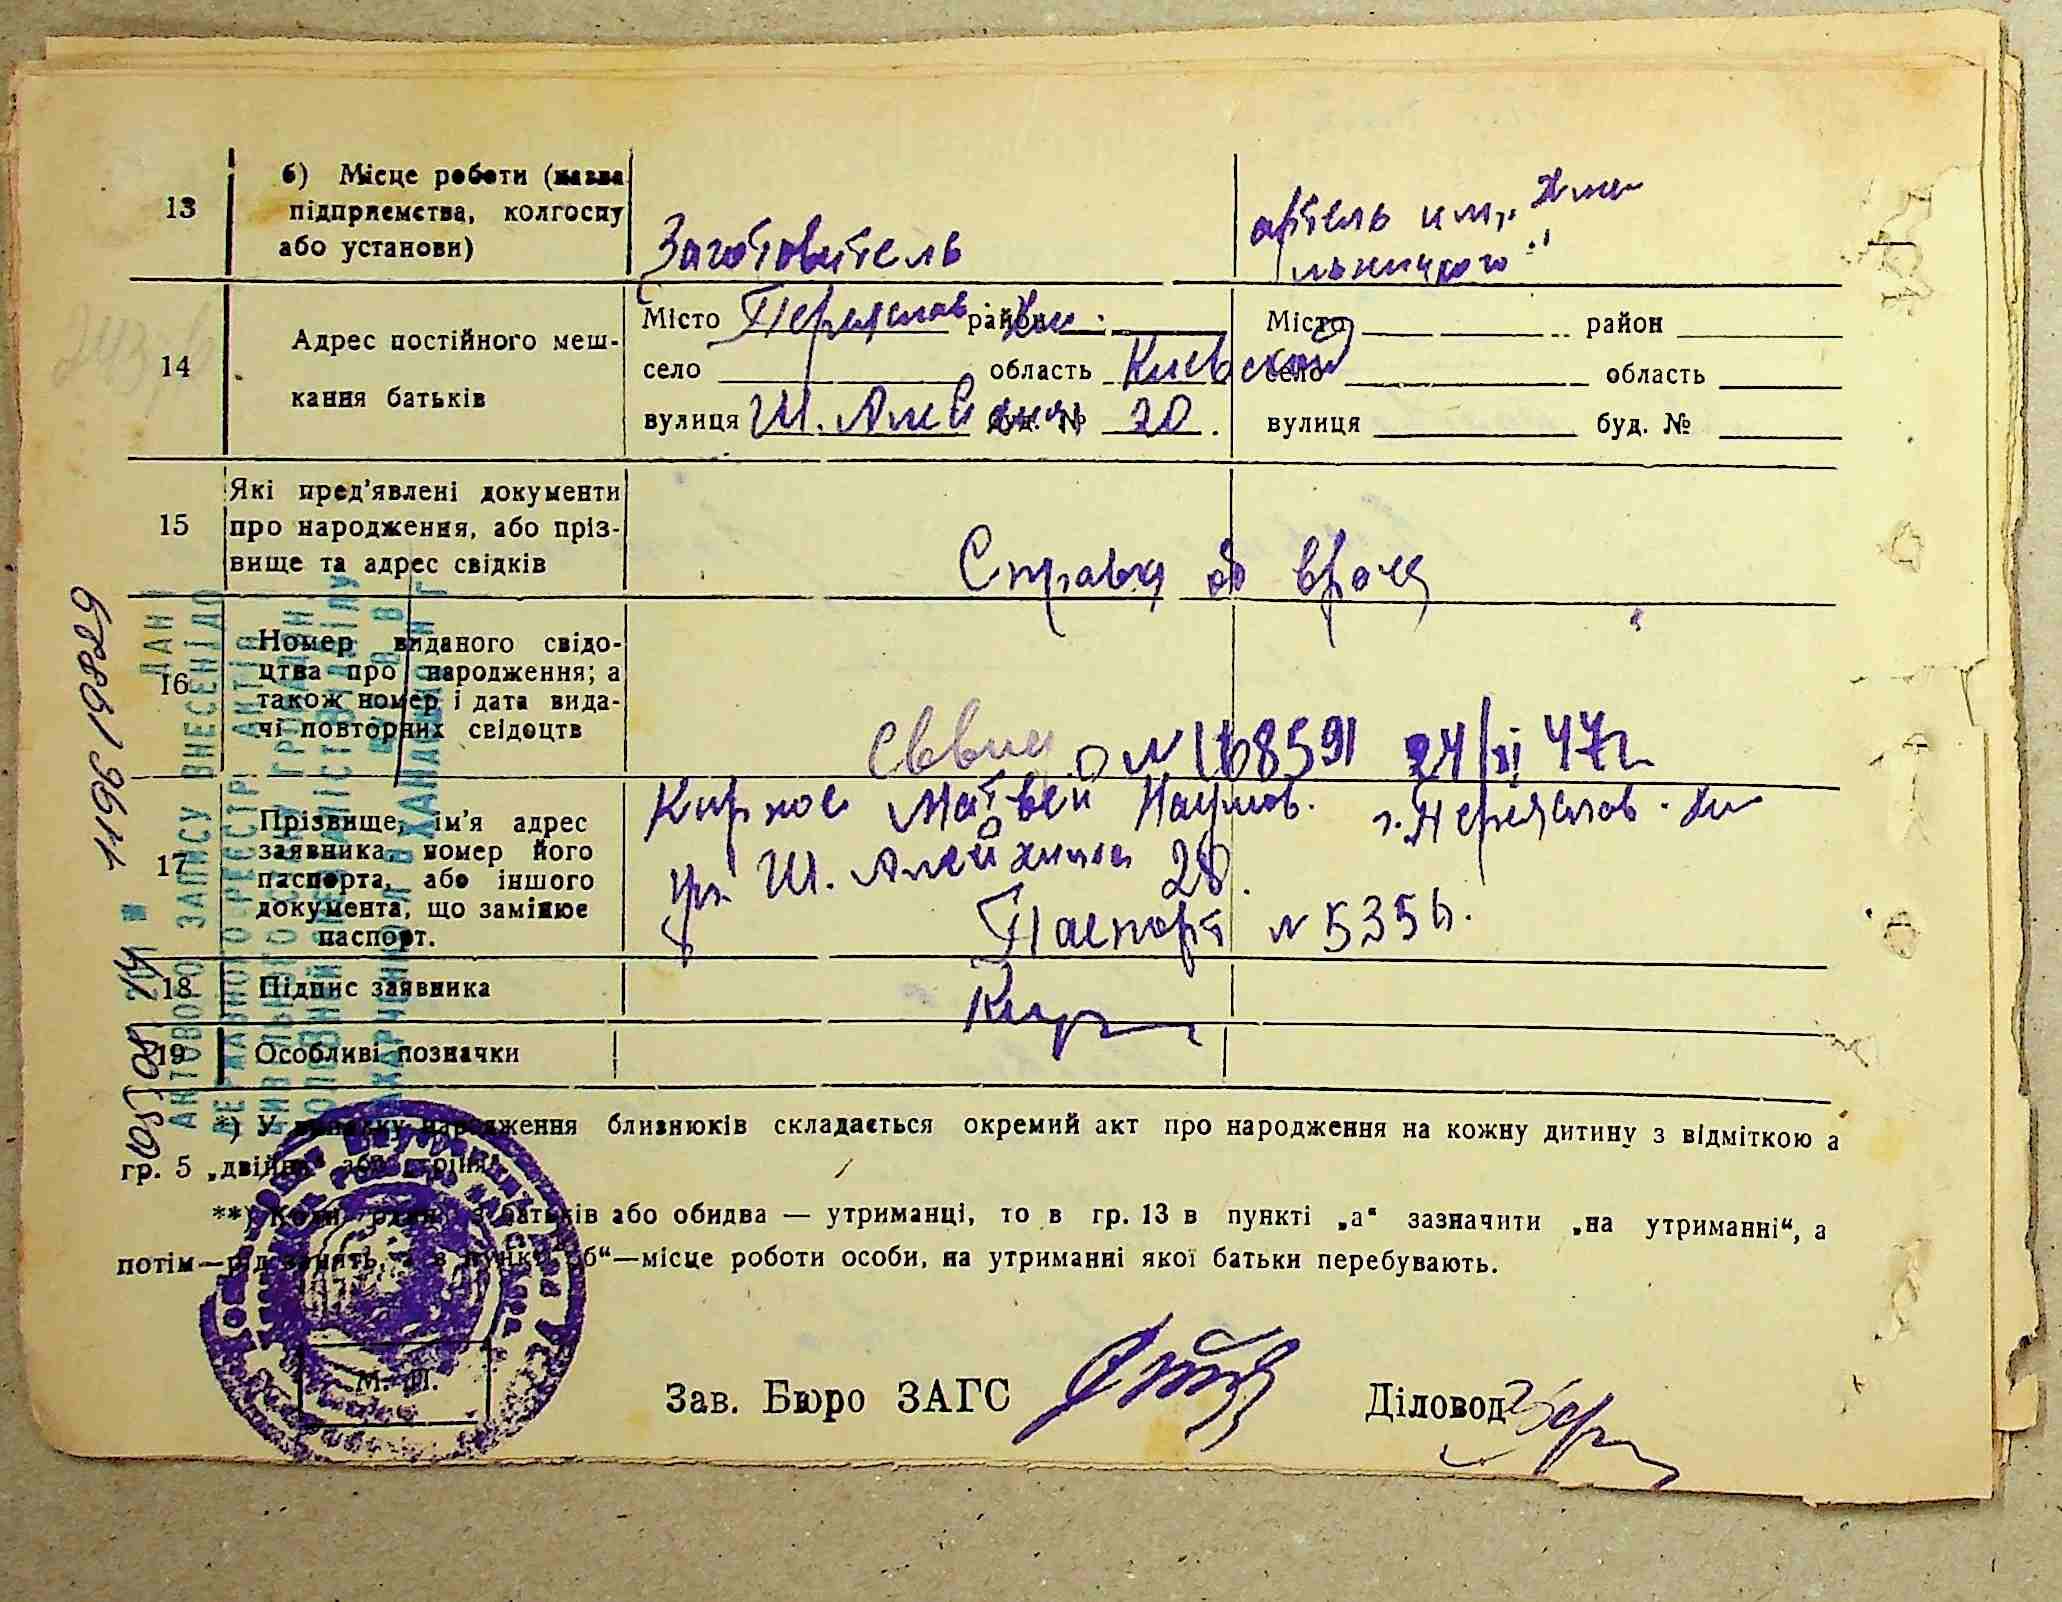 13
б) Місце роботи (назва
підприємства, колгоспу
або установи)
Заготовитель
артель им. „Хме
льницкого"
14
Адрес постійного меш-
кання батьків
Місто Переяслав район Хм.
село область Киевской
вулиця Ш. Алейхема буд. № 20.
Місто район
село область
вулиця буд. №
15
Які пред'явлені документи
про народження, або пріз-
вище та адрес свідків
Справка от врача
16
Номер виданого свідо-
цтва про народження; а
також номер і дата вида-
чі повторних свідоцтв
№ 168591 24/XI 47г
17
Прізвище, ім'я адрес
заявника, номер його
паспорта, або іншого
документа, що замінює
паспорт.
Матвей Наумов. г. Переяслав. Хм
ул. Ш. Алейхема 20.
Паспорт №
18
Підпис заявника
19
Особливі позначки
*) У випадку народження близнюків складається окремий акт про народження на кожну дитину з відміткою а
гр. 5 „двійня" або „трійня".
**) Коли один з батьків або обидва — утриманці, то в гр. 13 в пункті „а" зазначити „на утриманні", а
потім—рід занять, а в пункті „б"—місце роботи особи, на утриманні якої батьки перебувають.
М. П.
Зав. Бюро ЗАГС
Діловод
ДАНІ
АКТОВОГО ЗАПИСУ ВНЕСЕНІ ДО
ДЕРЖАВНОГО РЕЄСТРУ АКТІВ
ЦИВІЛЬНОГО СТАНУ ГРОМАДЯН